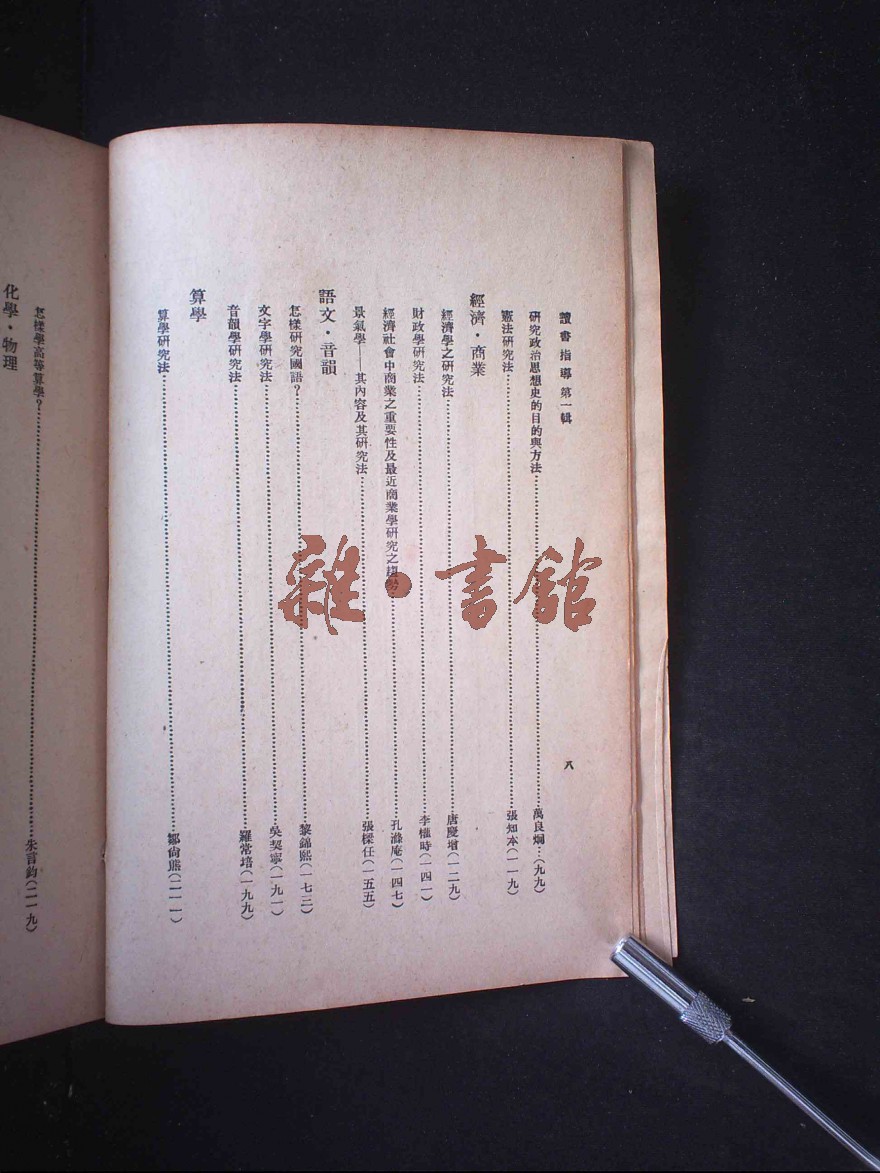 讀書指導第一輯
八
研究政治思想史的目的與方法……萬良炯…(九九)
憲法研究法……張知本(一一九)
經濟·商業
經濟學之研究法……唐慶增(一二九)
財政學研究法……李權時(一四一)
經濟社會中商業之重要性及最近商業學研究之趨勢……孔滌庵(一四七)
景氣學——其內容及其研究法……張樑任(一五五)
語文·音韻
怎樣研究國語?……黎錦熙(一七三)
文字學研究法……吳契寧(一九一)
音韻學研究法……羅常培(一九九)
算學
算學研究法……鄒尙熊(二一一)
怎樣學高等算學?……朱言鈞(二一九)
化學·物理
雜·書館